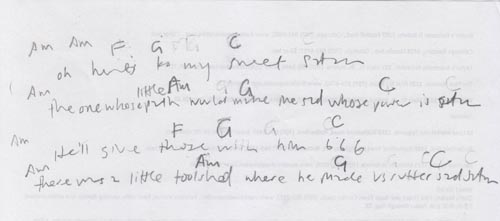 Am Am F G G C C
oh here's to my sweet satan
Am little Am G G C C
The one whose path would make me sad whose power is satan
Am F G G C C
He'll give those with him 666
Am Am G G C C C
there was a little toolshed where he made us suffer sad satan